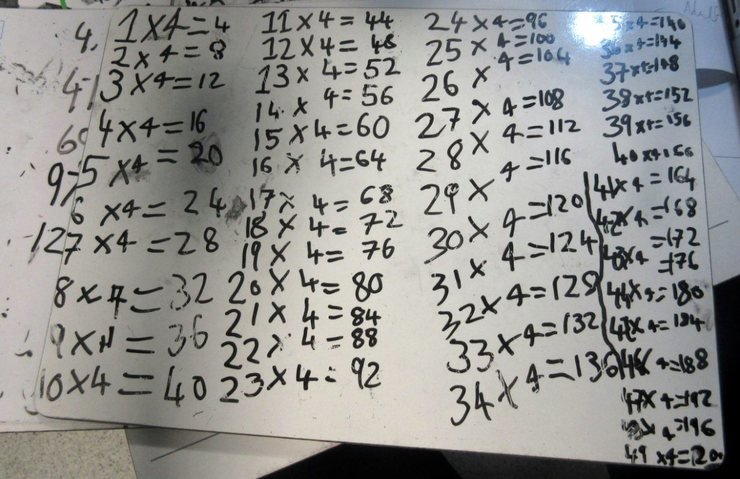 1x4=4
2x4=8
3x4=12
4x4=16
5x4=20
6x4=24
7x4=28
8x4=32
9x4=36
10x4=40
11x4=44
12x4=48
13x4=52
14x4=56
15x4=60
16x4=64
17x4=68
18x4=72
19x4=76
20x4=80
21x4=84
22x4=88
23x4=92
24x4=96
25x4=100
26x4=104
27x4=108
28x4=112
29x4=116
30x4=120
31x4=124
32x4=128
33x4=132
34x4=136
35x4=140
36x4=144
37x4=148
38x4=152
39x4=156
40x4=160
41x4=164
42x4=168
=172
=176
x4=180
x4=184
x4=188
47x4=192
x4=196
49x4=200